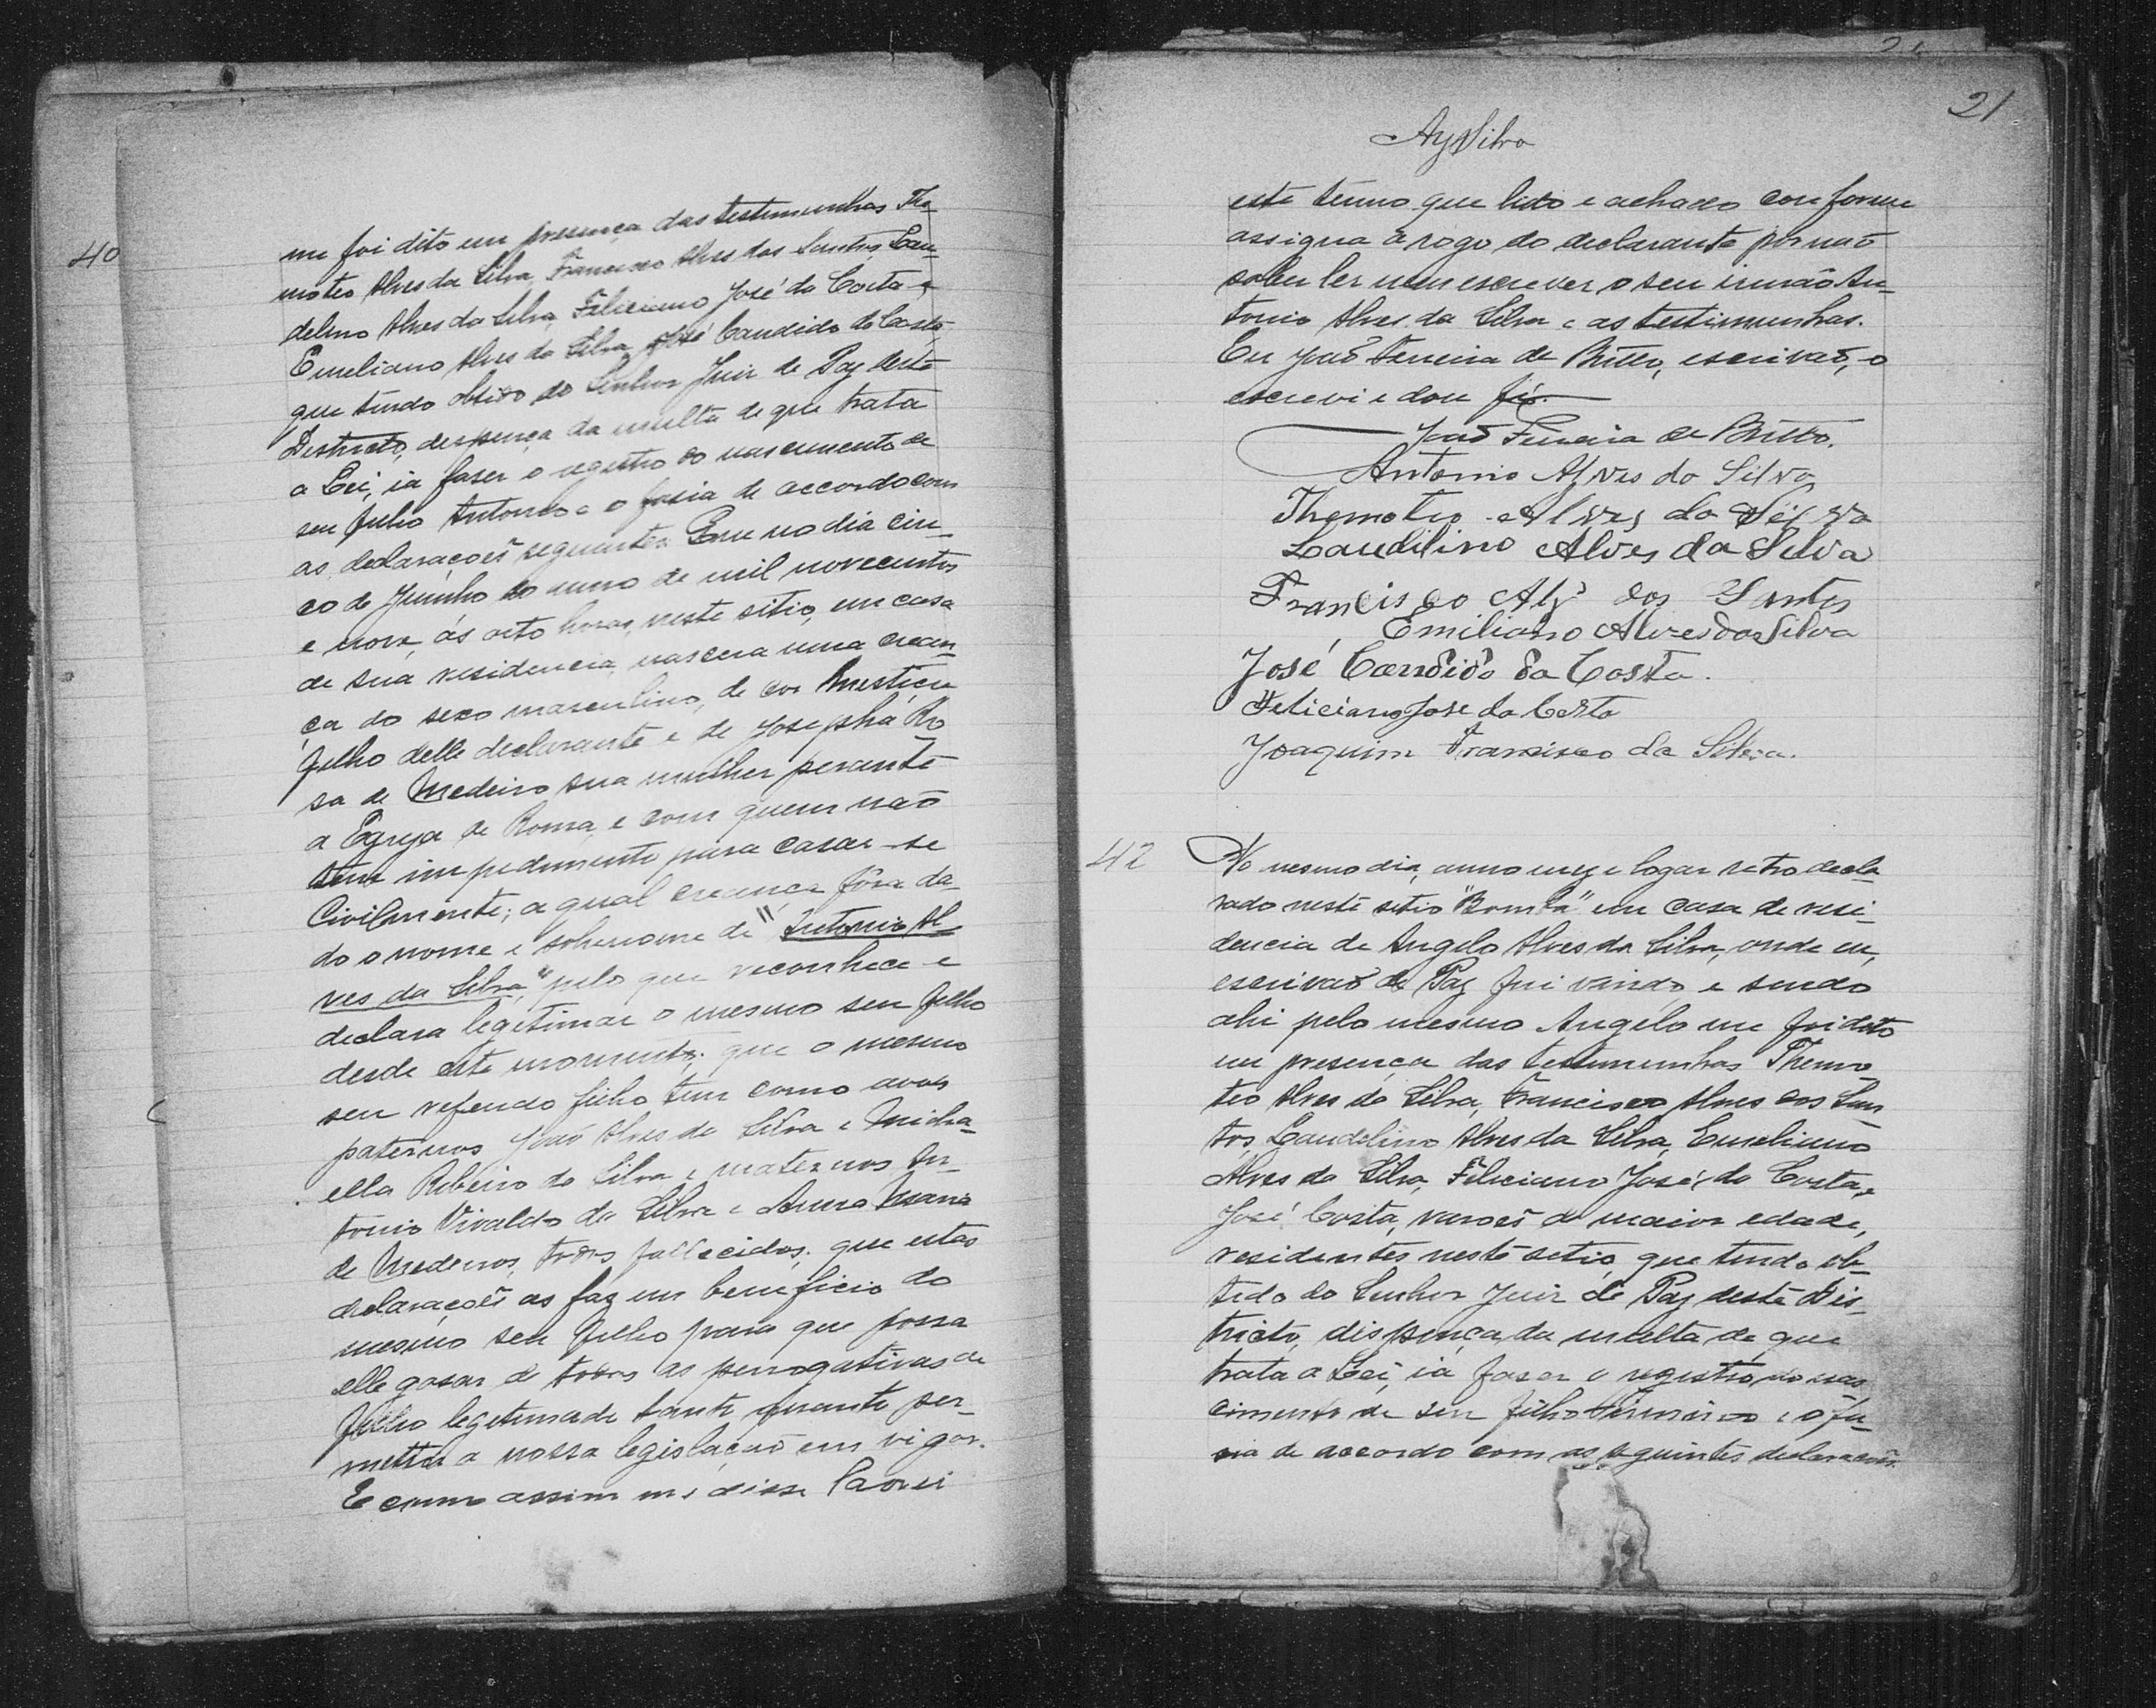 40
me foi dito em presença das testemunhas The-
moteo Alves da Silva, Francisco Alves dos Santos, Lau-
delino Alves da Silva, Feliciano José da Costa e
Emeliano Alves da Silva, José Candido da Costa,
que tendo obtido do Senhor Juiz de Paz deste
Districto, despença da multa de que trata
a Lei, ia faser o registro do nascimento de
seu filho Antonio e o fasia de accordo com
as declarações seguintes: Que no dia cin-
co de Junho do anno de mil novecentos
e nove, ás oito horas, neste sitio, em casa
de sua residencia, nascera uma crean-
ça do sexo masculino, de cor mestiça
filho delle declarante e de Josepha Ro
sa de Medeiro sua mulher perante
a Egreja de Roma, e com quem não
tem impedimento para casar-se
Civilmente; a qual creança fôra da-
do o nome e sobrenome de "Antonio Al-
ves da Silva," pelo que reconhece e
declara legitimar o mesmo seu filho
desde este momento; que o mesmo
seu referido filho tem como avos
paternos João Alves da Silva e Micha-
ella Ribeiro da Silva e maternos An-
tonio Vivaldo da Silva e Anna Maria
de Medeiros, todos fallecidos; que estas
declarações as faz em beneficio do
mesmo seu filho para que possa
elle gosar de todas as perrogativas de
filho legitimado tanto quanto per-
mettir a nossa legislação em vigor.
E como assim me disse lavrei
21
AySilva
este termo que lido e achado conforme
assigna a rogo do declarante por não
saber ler nem escrever o seu irmão An-
tonio Alves da Silva e as testimunhas.
Eu João Ferreira de Britto, escrivão, o
escrevi e dou fé.
João Ferreira de Britto.
Antonio Alves da Silva
Themoteo Alves da Silva
Laudilino Alves da Silva
Francisco Alz dos Santos
Emiliano Alves da Silva
José Candido da Costa.
Feliciano Jose da Costa
Joaquim Francisco da Silva.
42
No mesmo dia, anno mez e logar retro decla
rado neste sitio "Bomba" em casa de resi-
dencia de Angelo Alves da Silva, onde eu,
escrivão de Paz fui vindo e sendo
ahi pelo mesmo Angelo me foi dito
em presença das testemunhas Themo
teo Alves da Silva, Francisco Alves dos San
tos, Laudelino Alves da Silva, Emeliano
Alves da Silva, Feliciano José da Costa, e
José Costa, varões de maior edade,
residentes neste sitio, que tendo ob-
tido do Senhor Juiz de Paz deste Dis-
tricto, dispença da multa de que
trata a Lei, ia faser o registro do nas
cimento de seu filho Firmino e o fa-
sia de accordo com as seguintes declarações